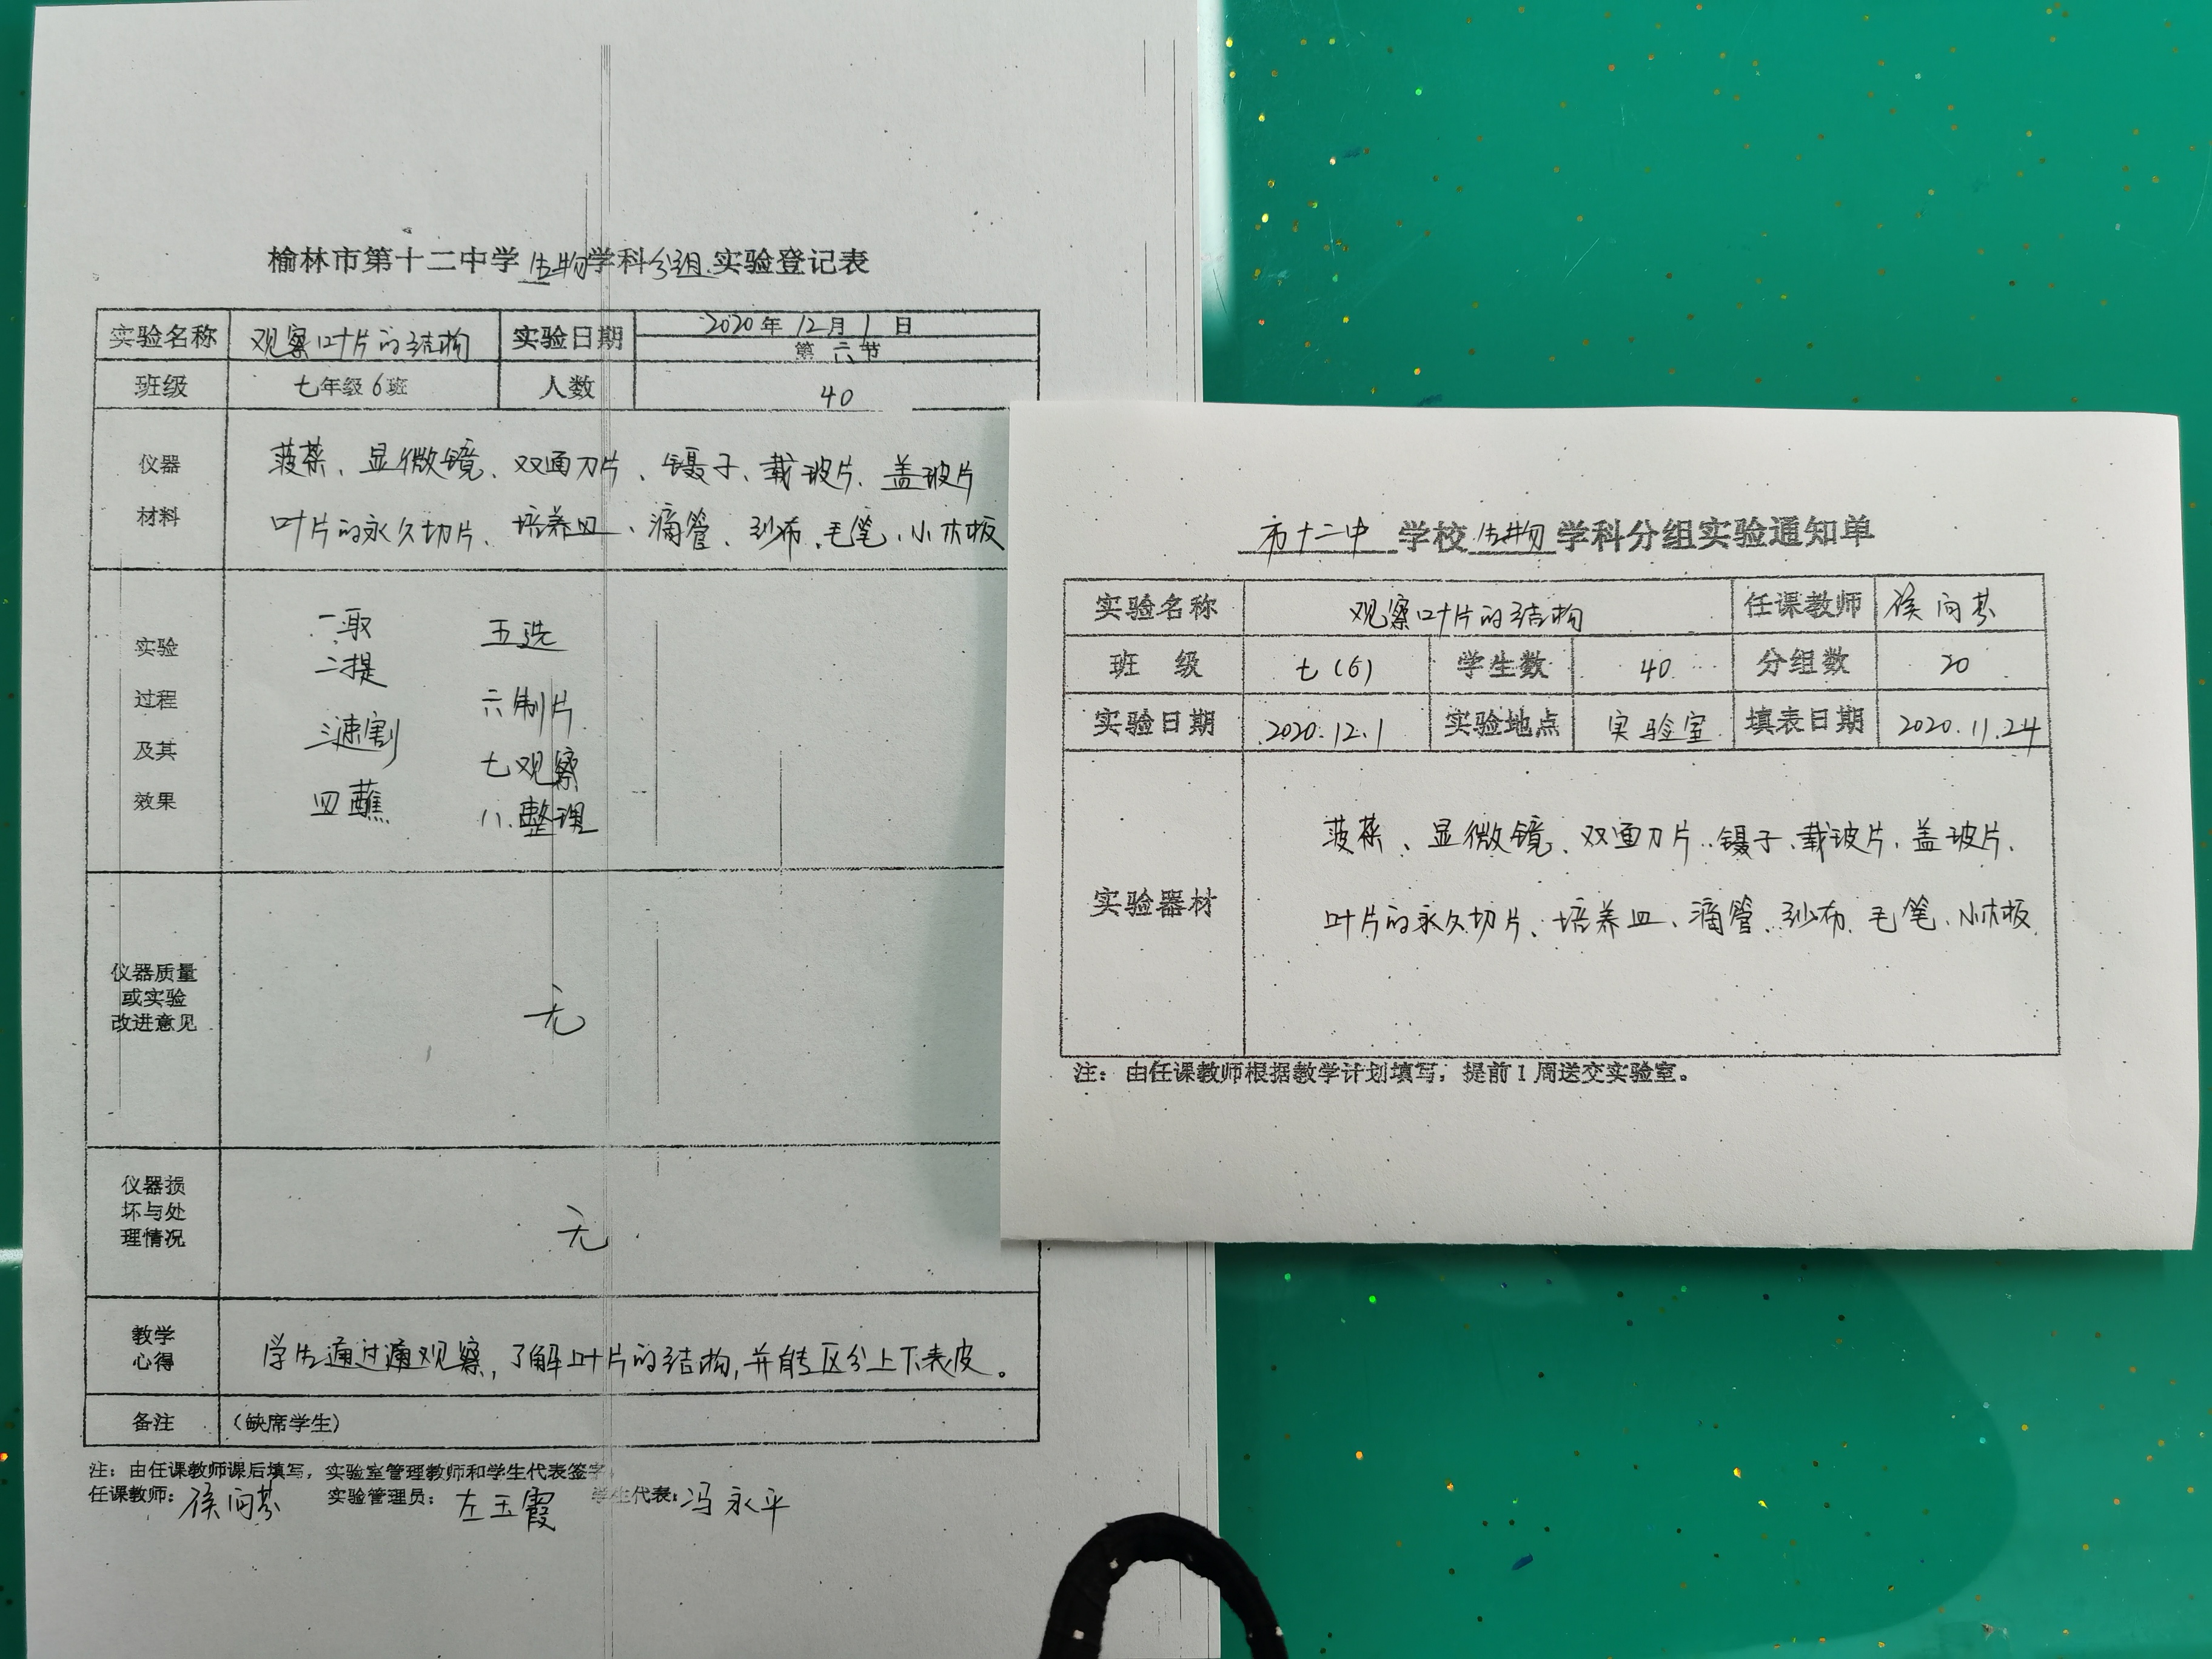 榆林市第十二中学生物学科分组实验登记表
实验名称 观察叶片的结构 实验日期 2020年12月1日
第六节
班级 七年级6班 人数 40
仪器材料 菠菜、显微镜、双面刀片、镊子、载玻片、盖玻片
叶片的永久切片、培养皿、滴管、纱布、毛笔、小木板
实验过程及其效果
一取 五选
二提 六制片
三速割 七观察
四蘸 八.整理
仪器质量或实验改进意见 无
仪器损坏与处理情况 无
教学心得 学生通过通观察,了解叶片的结构,并能区分上下表皮。
备注 (缺席学生)
注:由任课教师课后填写,实验室管理教师和学生代表签字
任课教师:侯向芬 实验管理员:左玉霞 学生代表:冯永平
市十二中学校生物学科分组实验通知单
实验名称 观察叶片的结构 任课教师 侯向芬
班 级 七(6) 学生数 40 分组数 20
实验日期 2020.12.1 实验地点 实验室 填表日期 2020.11.24
实验器材 菠菜、显微镜、双面刀片、镊子、载玻片、盖玻片、
叶片的永久切片、培养皿、滴管、纱布、毛笔、小木板
注:由任课教师根据教学计划填写,提前1周送交实验室。